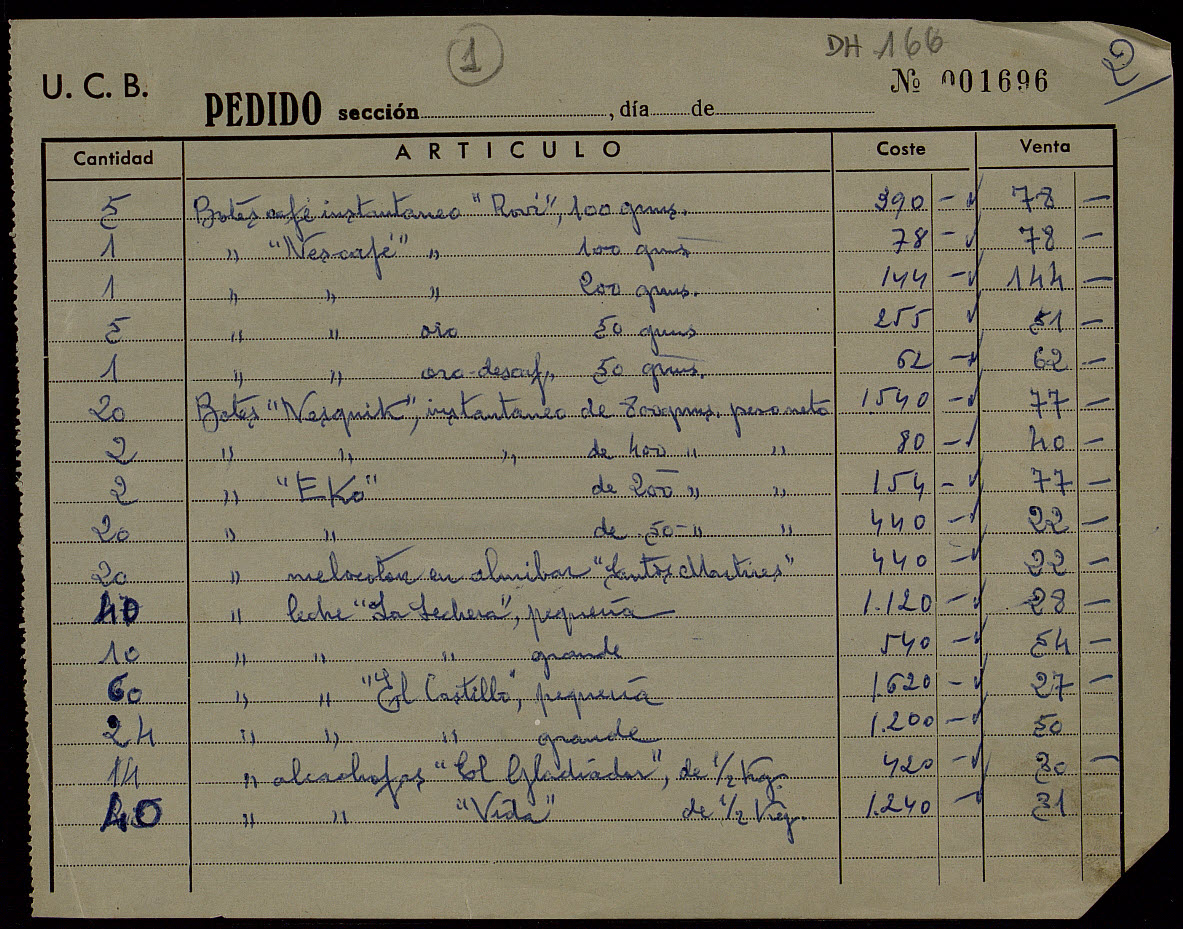 1
DH 166
2
U. C. B.
Nº 001696
PEDIDO sección , día de
Cantidad ARTICULO Coste Venta
5 Botes café instantaneo " ", 100 grms. 390 - 78 -
1 " "Nescafé" " 100 grms 78 - 78 -
1 " " " 200 grms. 144 - 144 -
5 " " oro 50 grms 255 51 -
1 " " oro-descaf, 50 grms. 62 - 62 -
20 Botes "Nesquik", instantaneo de 800 grms. peso neto 1540 - 77 -
2 " " " de 400 " " 80 - 40 -
2 " "EKo" de 200 " " 154 - 77 -
20 " " de 50 - " " 440 - 22 -
20 " melocotón en almibar "Santos Martires" 440 - 22 -
40 " leche "La Lechera", pequeña 1.120 - 28 -
10 " " " grande 540 - 54 -
60 " " "El Castillo", pequeña 1.620 - 27 -
24 " " " grande 1.200 - 50
14 " alcachofas "El Gladiador", de 1/2 Kg. 420 - 30 -
40 " " "Vida" de 1/2 Kg. 1.240 - 31